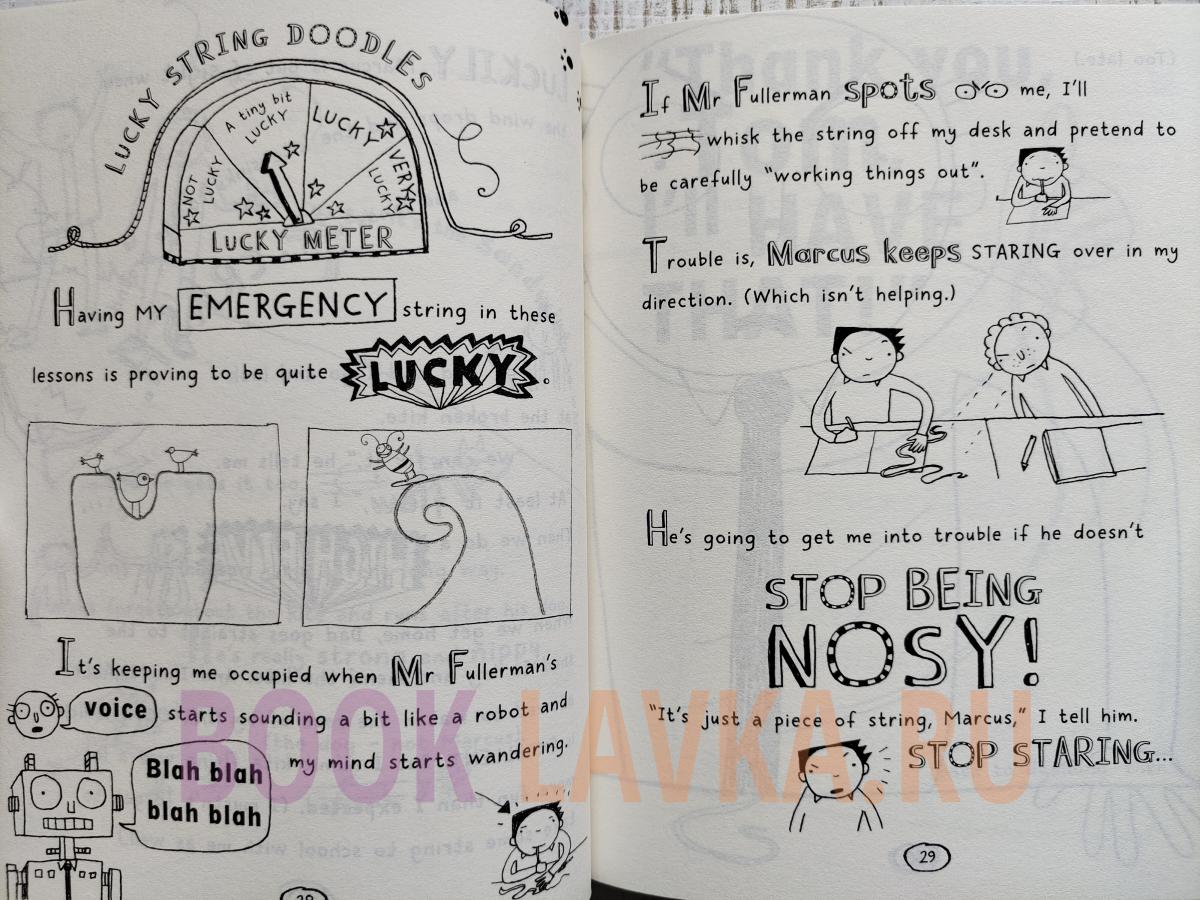 LUCKY STRING DOODLES
NOT LUCKY
A tiny bit LUCKY
LUCKY
VERY LUCKY
LUCKY METER
Having MY EMERGENCY string in these
lessons is proving to be quite LUCKY.
It's keeping me occupied when Mr Fullerman's
voice starts sounding a bit like a robot and
my mind starts wandering.
Blah blah
blah blah
28
If Mr Fullerman spots me, I'll
whisk the string off my desk and pretend to
be carefully "working things out".
Trouble is, Marcus keeps STARING over in my
direction. (Which isn't helping.)
He's going to get me into trouble if he doesn't
STOP BEING
NOSY!
"It's just a piece of string, Marcus," I tell him.
STOP STARING...
29
BOOK LAVKA.RU